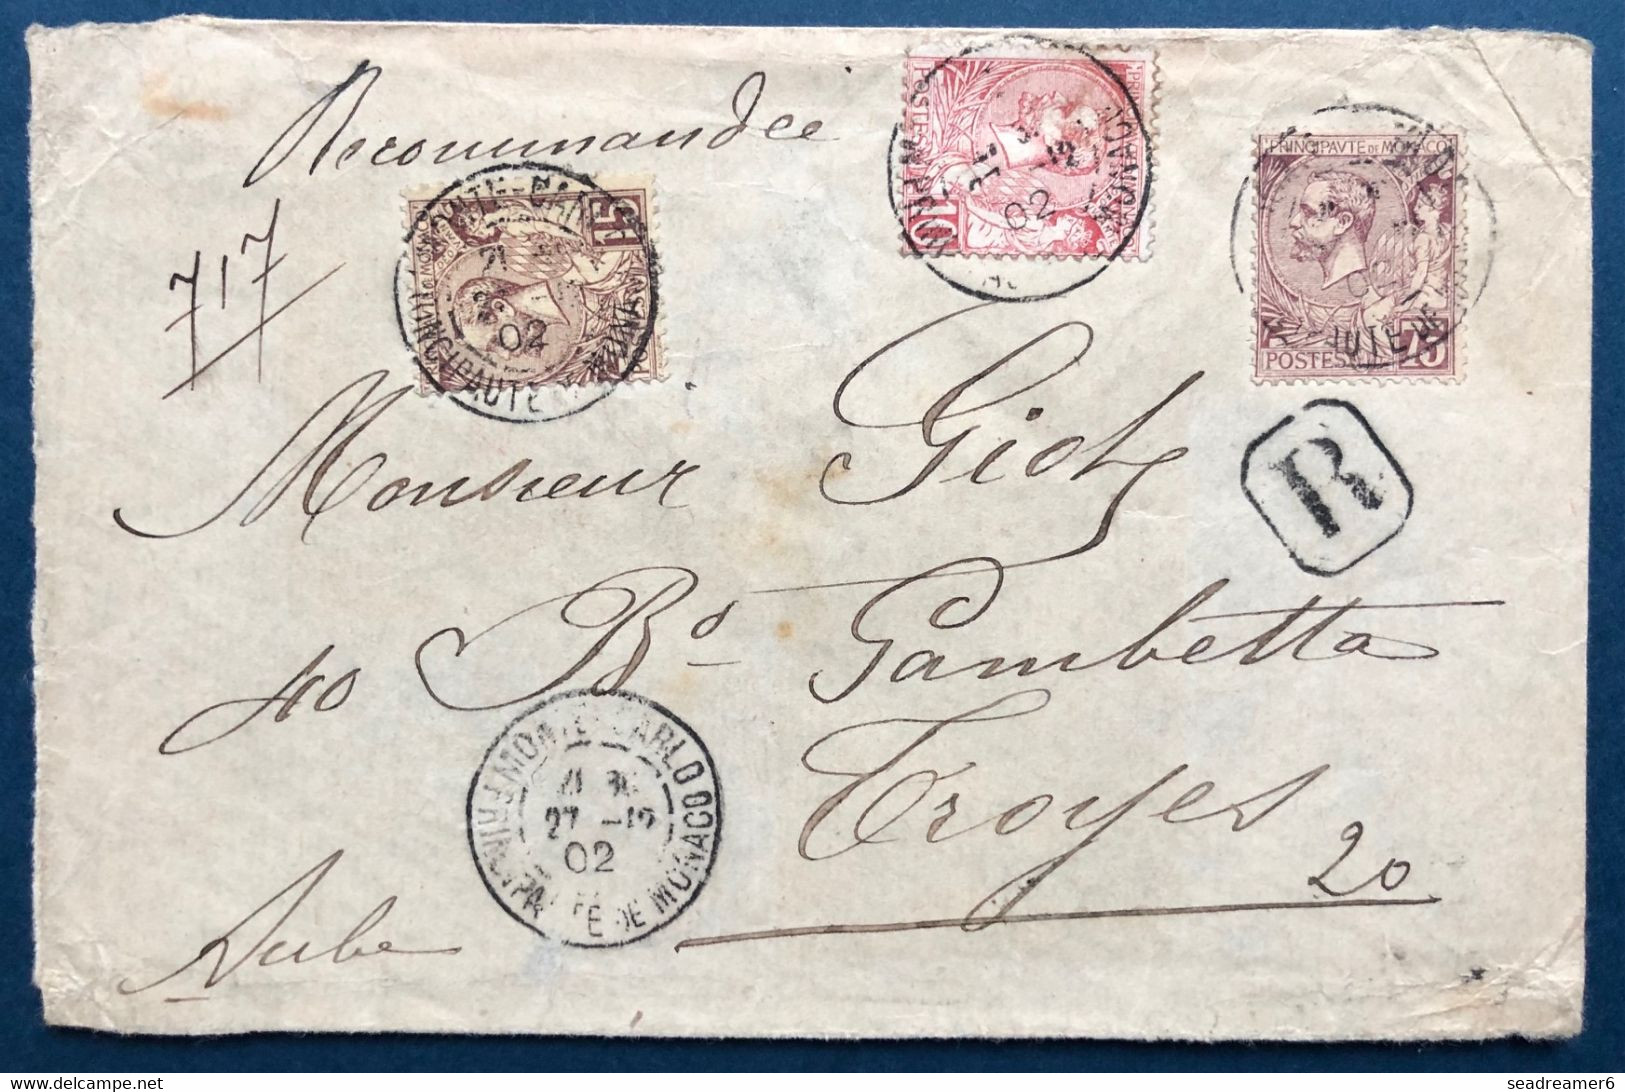 Recommandée
717
PRINCIPAUTÉ DE MONACO
POSTES
15
MONTE-CARLO
21
02
PRINCIPAUTE DE MONACO
POSTES
10
12
02
PRINCIPAUTÉ DE MONACO
POSTES 75
02
R
Monsieur Giot
40 Bd Gambetta
Troyes
20
Aube
MONTE-CARLO
27 -12
02
PRINCIPAUTE DE MONACO
www.delcampe.net
seadreamer6